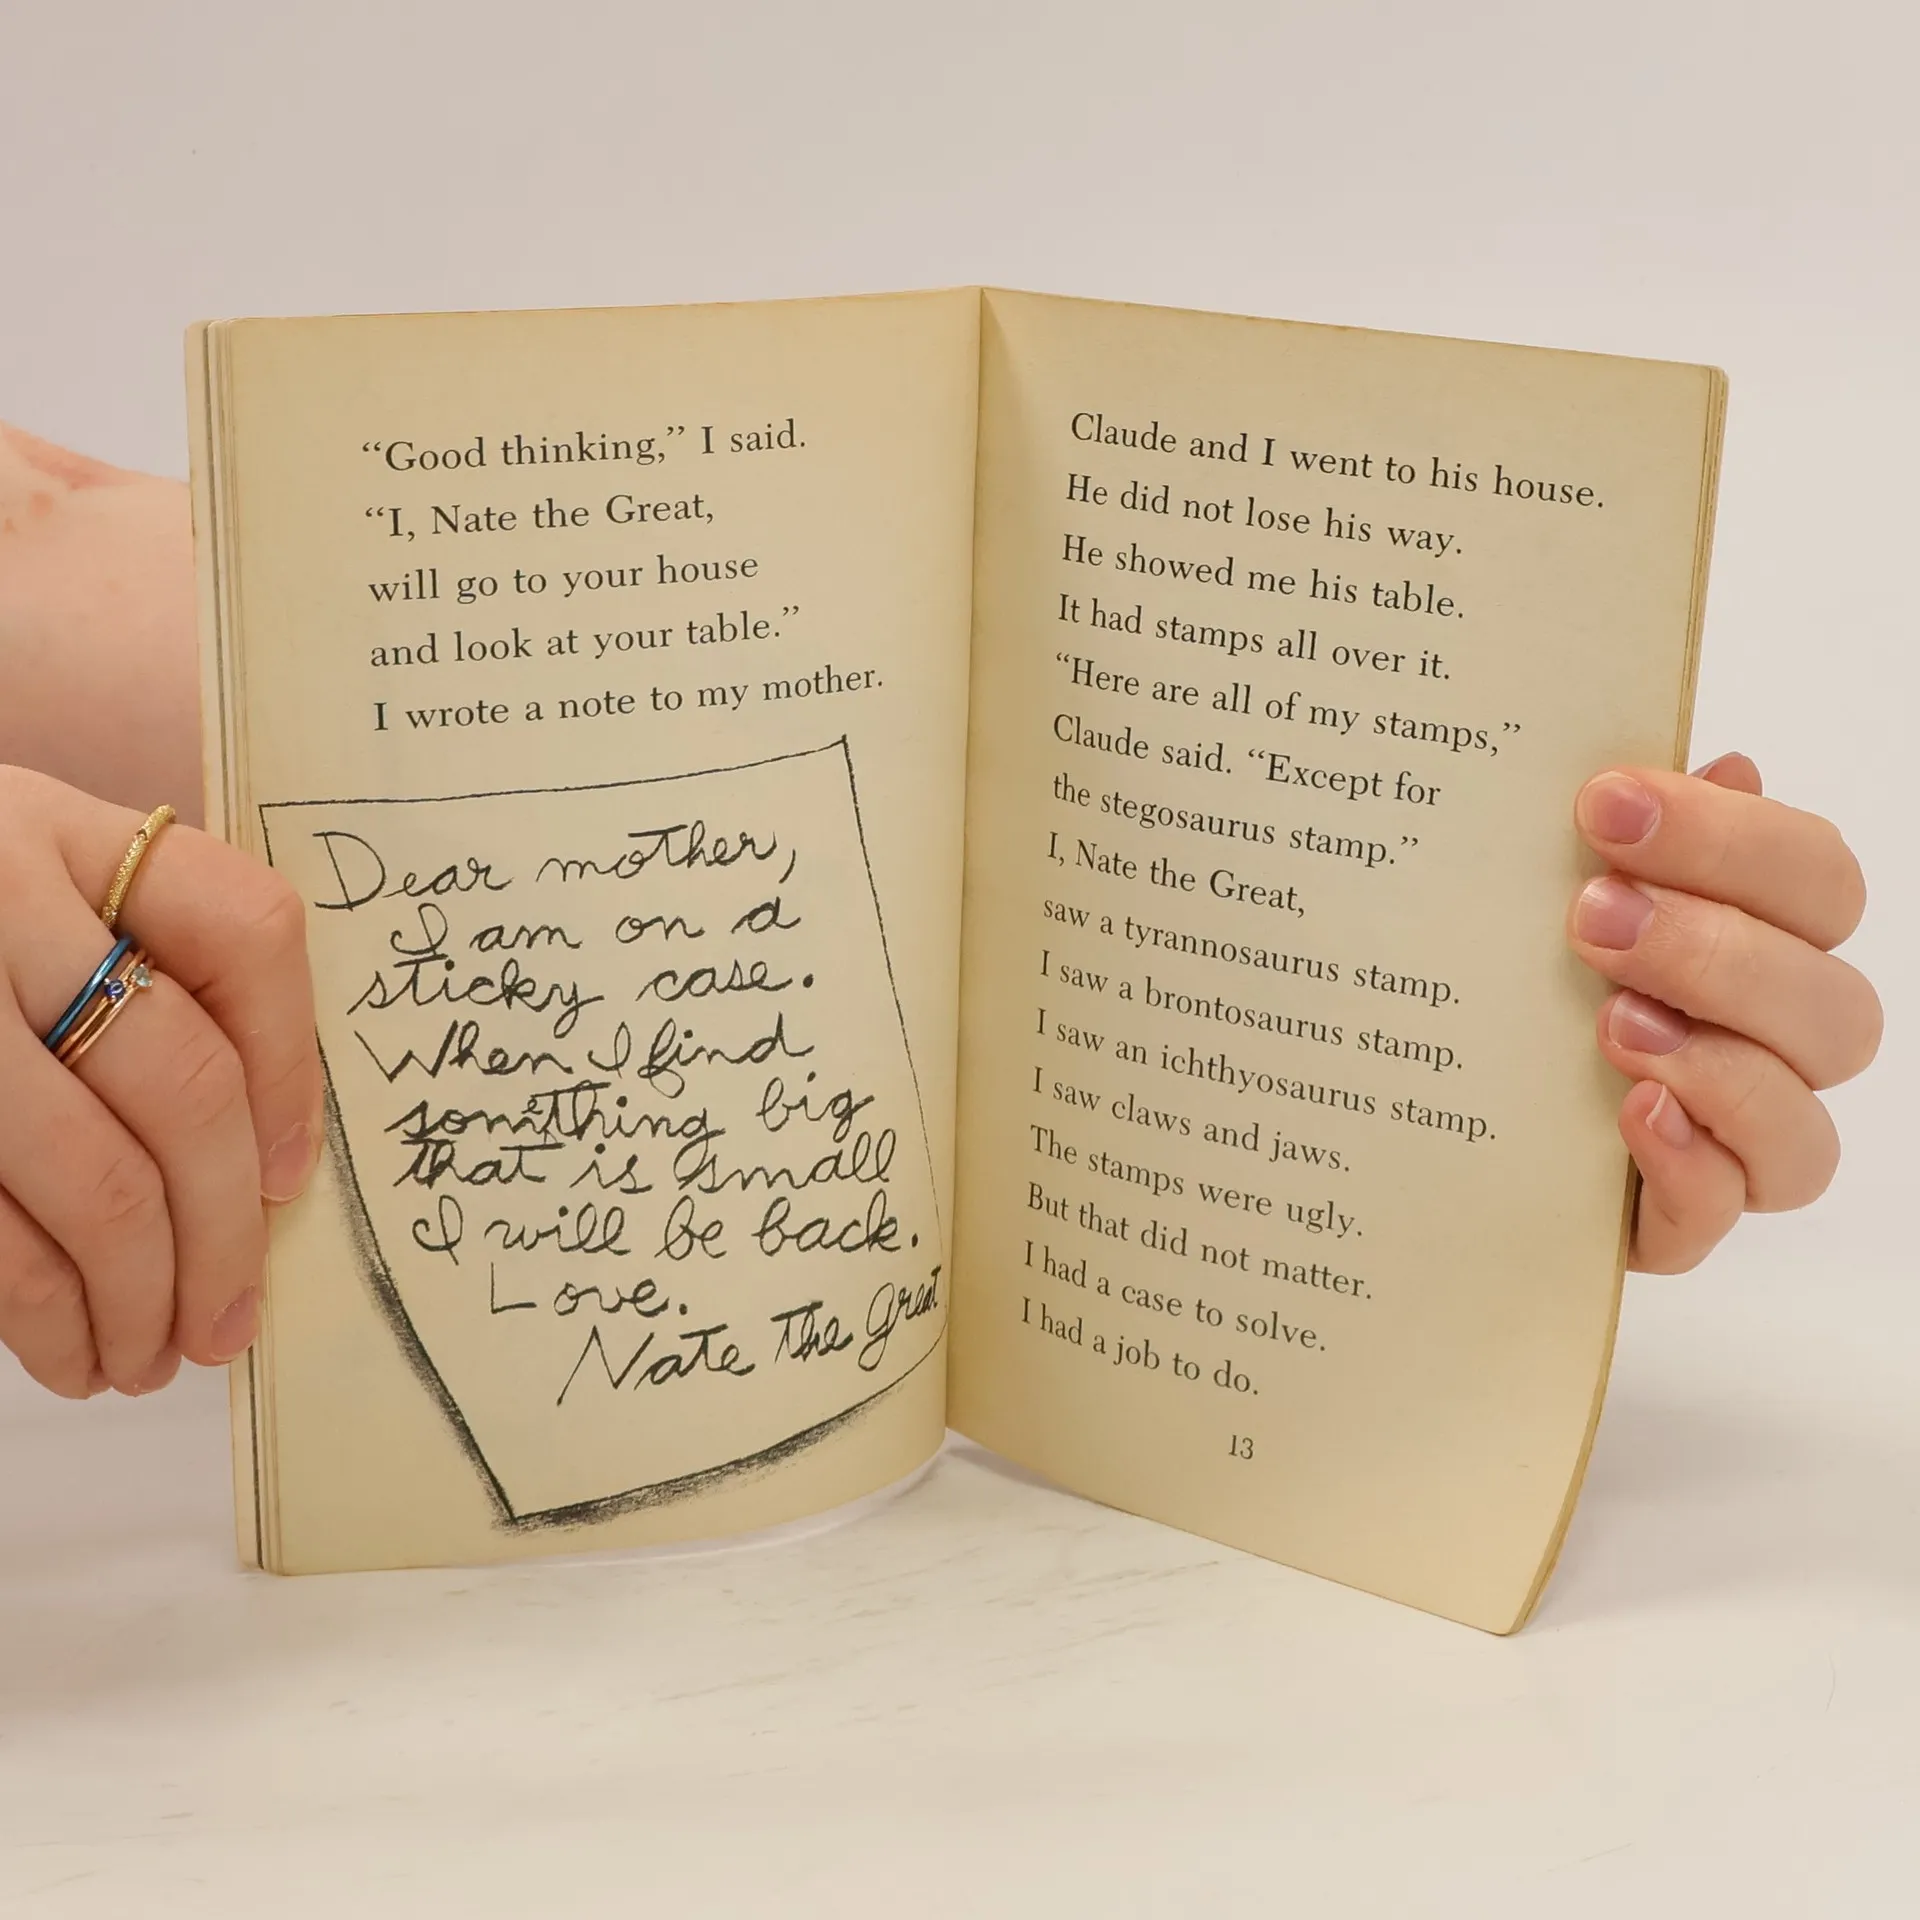 “Good thinking,” I said.
“I, Nate the Great,
will go to your house
and look at your table.”
I wrote a note to my mother.
Dear mother,
I am on a
sticky case.
When I find
something big
that is small
I will be back.
Love.
Nate the Great
Claude and I went to his house.
He did not lose his way.
He showed me his table.
It had stamps all over it.
“Here are all of my stamps,”
Claude said. “Except for
the stegosaurus stamp.”
I, Nate the Great,
saw a tyrannosaurus stamp.
I saw a brontosaurus stamp.
I saw an ichthyosaurus stamp.
I saw claws and jaws.
The stamps were ugly.
But that did not matter.
I had a case to solve.
I had a job to do.
13